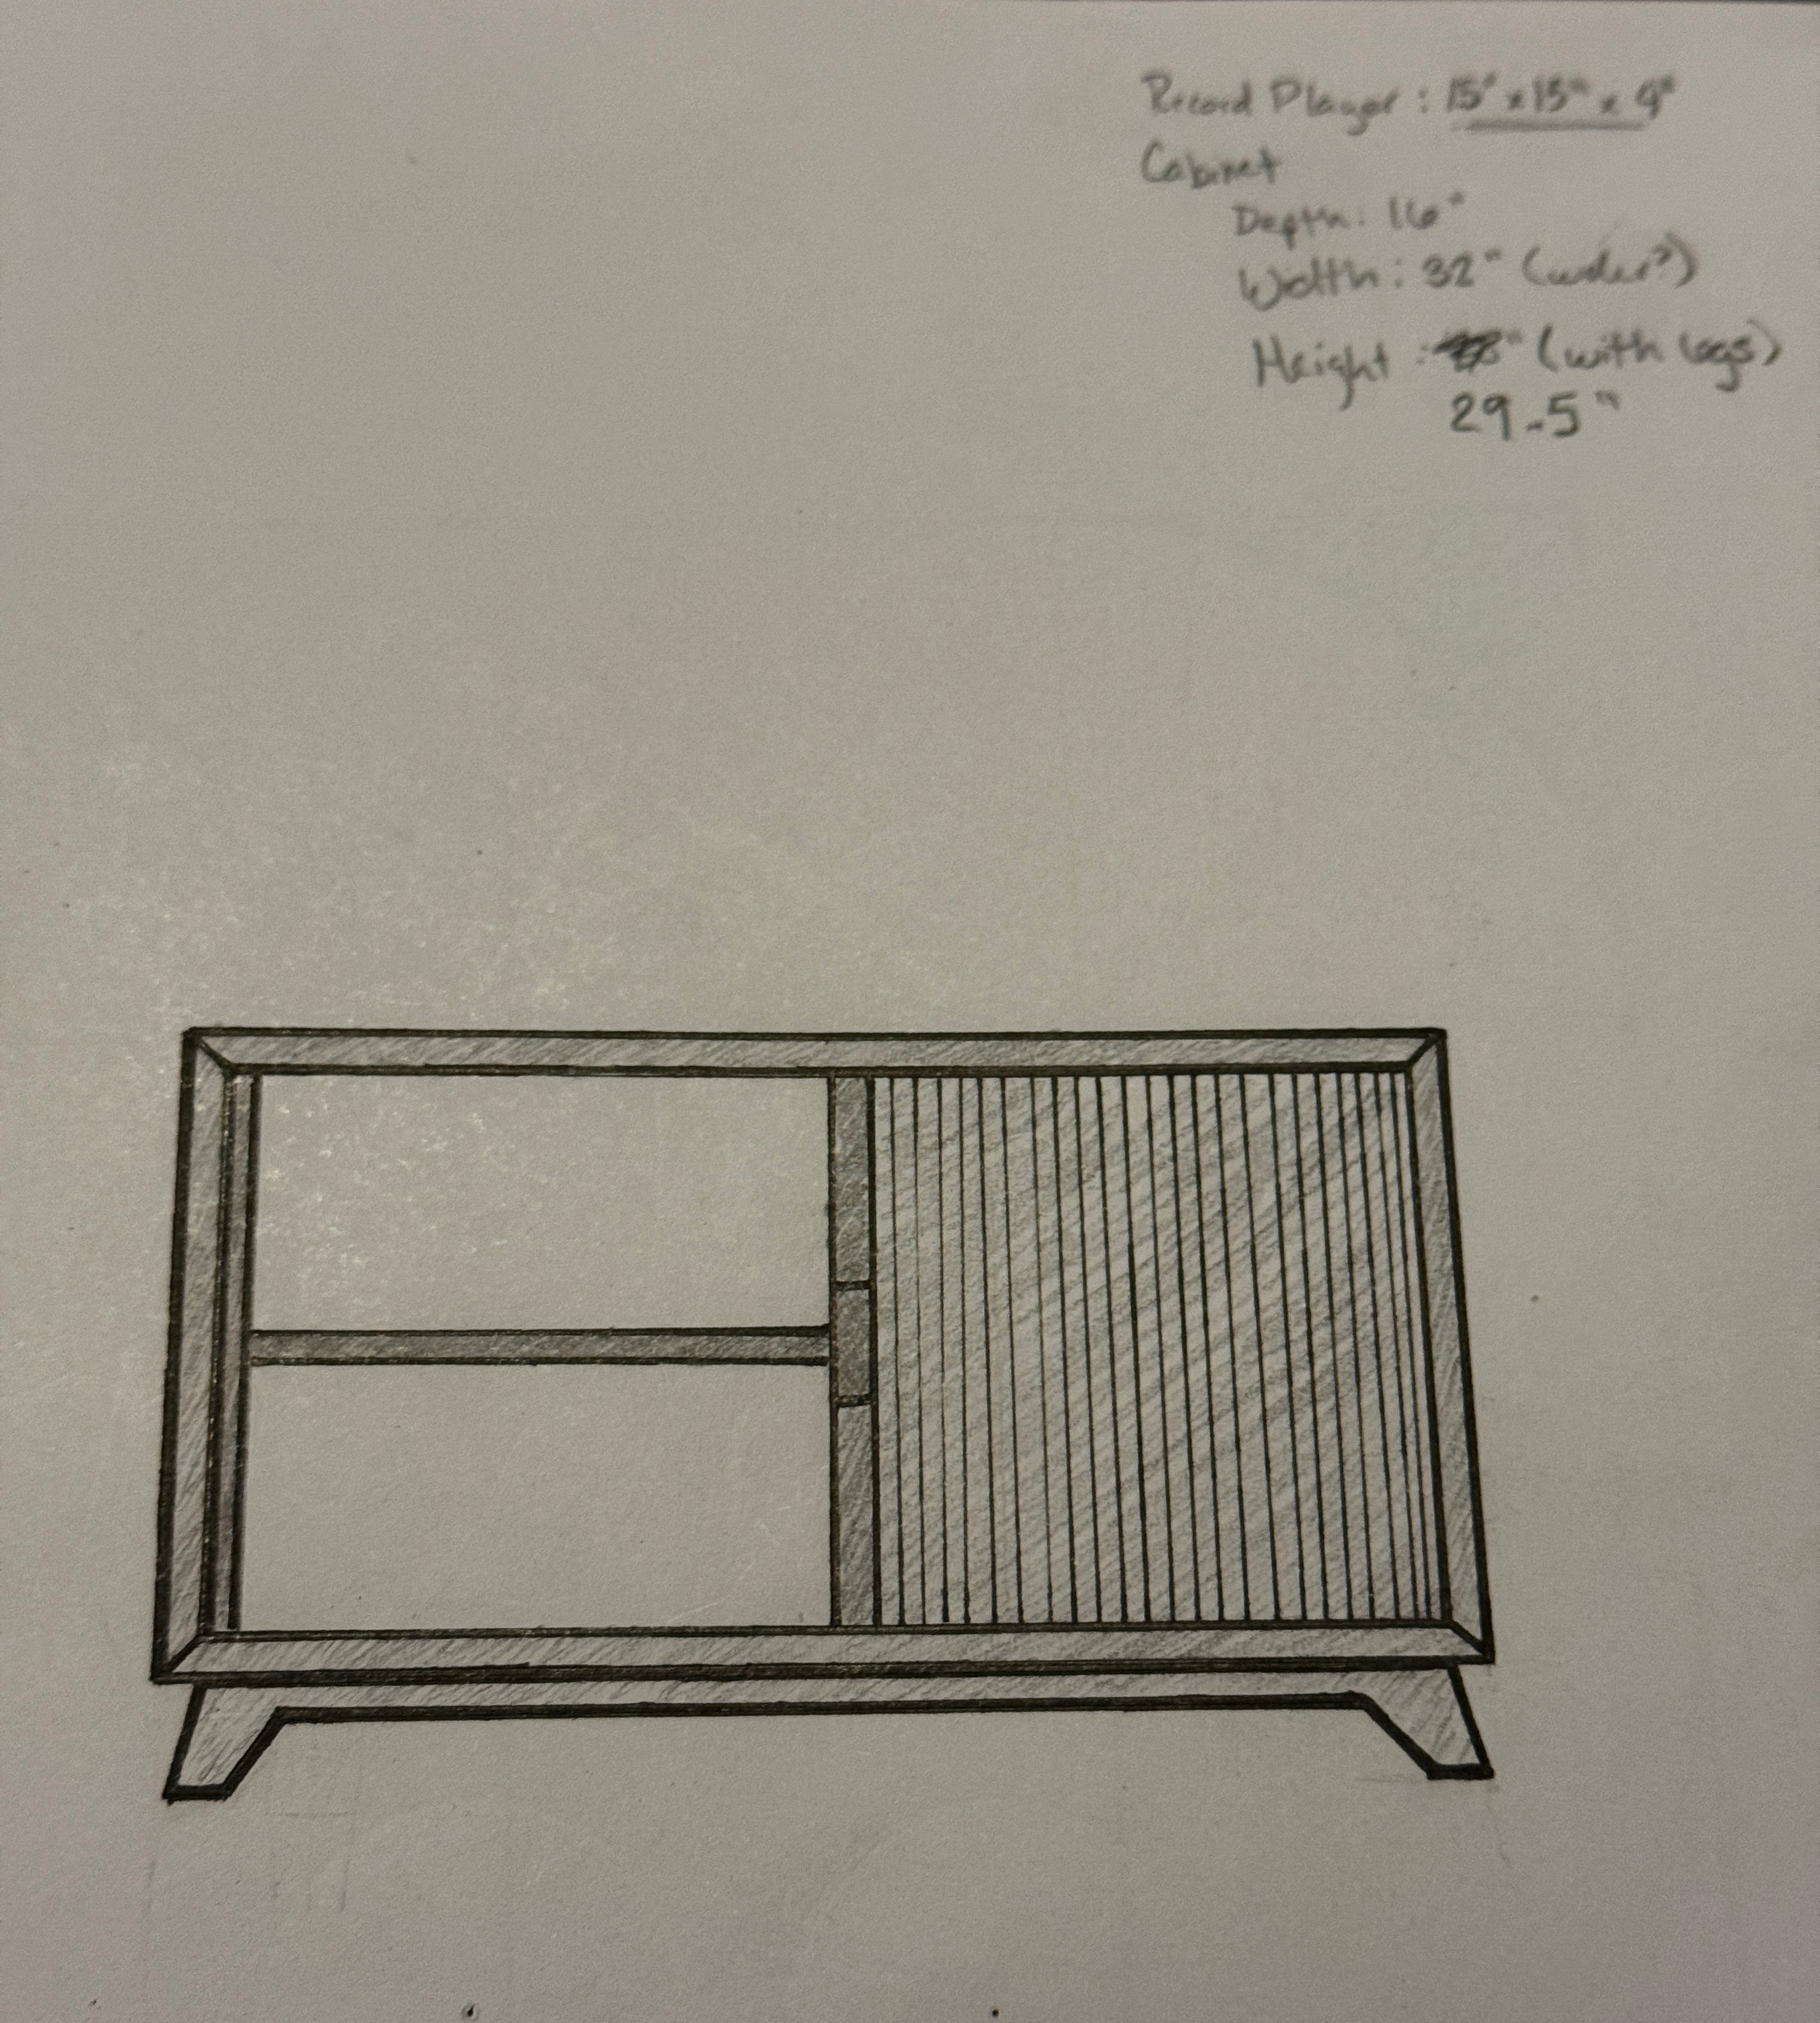 Record Player : 15" x 15" x 4"
Cabinet
Depth: 16"
Width: 32" (wider?)
Height : " (with legs)
29.5"